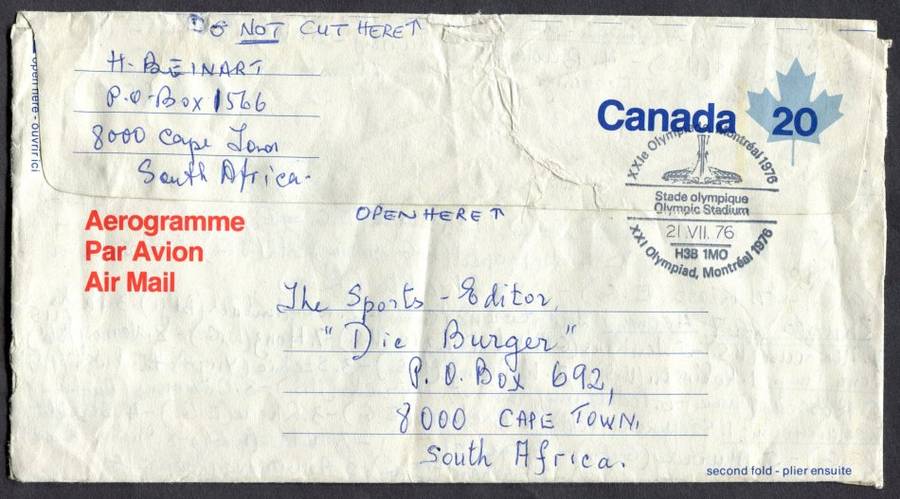 DO NOT CUT HERE↑
H. BEINART
P.O. Box 1566
8000 Cape Town
South Africa.
open here - ouvrir ici
Canada 20
XXIe Olympiade, Montréal 1976
Stade olympique
Olympic Stadium
21.VII.76
H3B 1MO
XXI Olympiad, Montréal 1976
Aerogramme
Par Avion
Air Mail
OPEN HERE↑
The Sports - Editor,
"Die Burger"
P.O. Box 692,
8000 CAPE TOWN,
South Africa.
second fold - plier ensuite